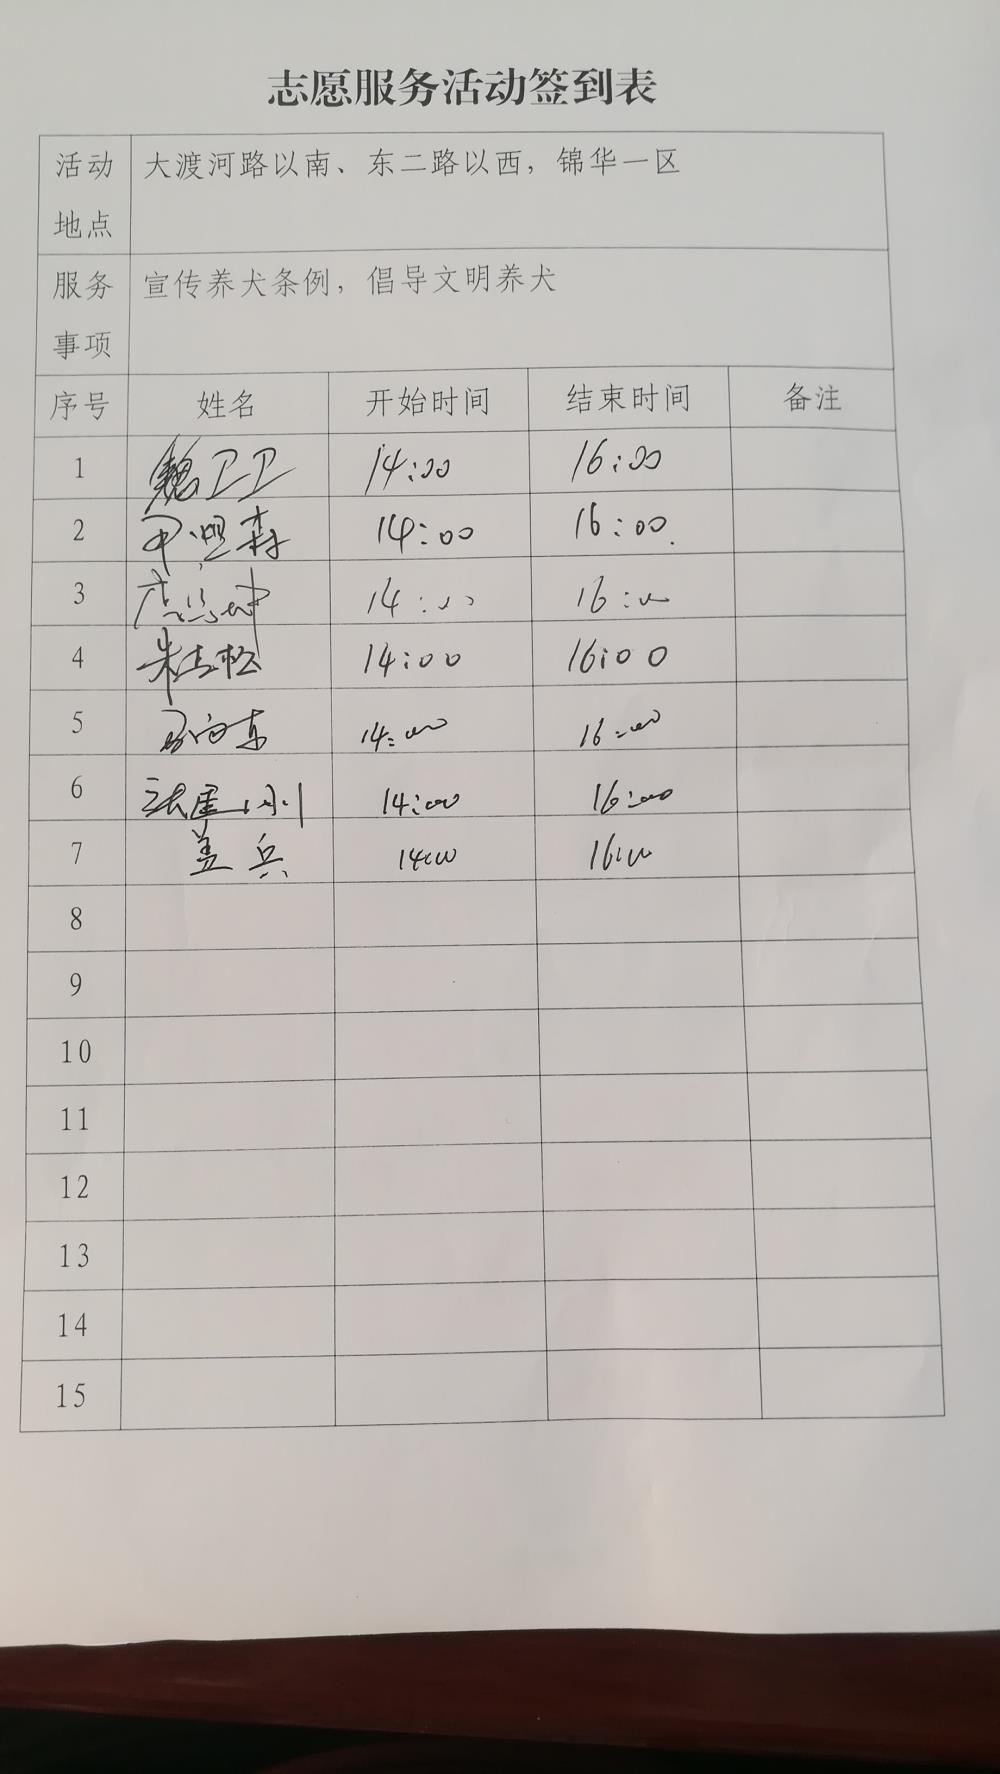 志愿服务活动签到表
活动地点 大渡河路以南、东二路以西，锦华一区
服务事项 宣传养犬条例，倡导文明养犬
序号 姓名 开始时间 结束时间 备注
1 魏卫卫 14:00 16:00
2 14:00 16:00
3 14:00 16:00
4 朱志松 14:00 16:00
5 14:00 16:00
6 14:00 16:00
7 盖兵 14:00 16:00
8
9
10
11
12
13
14
15